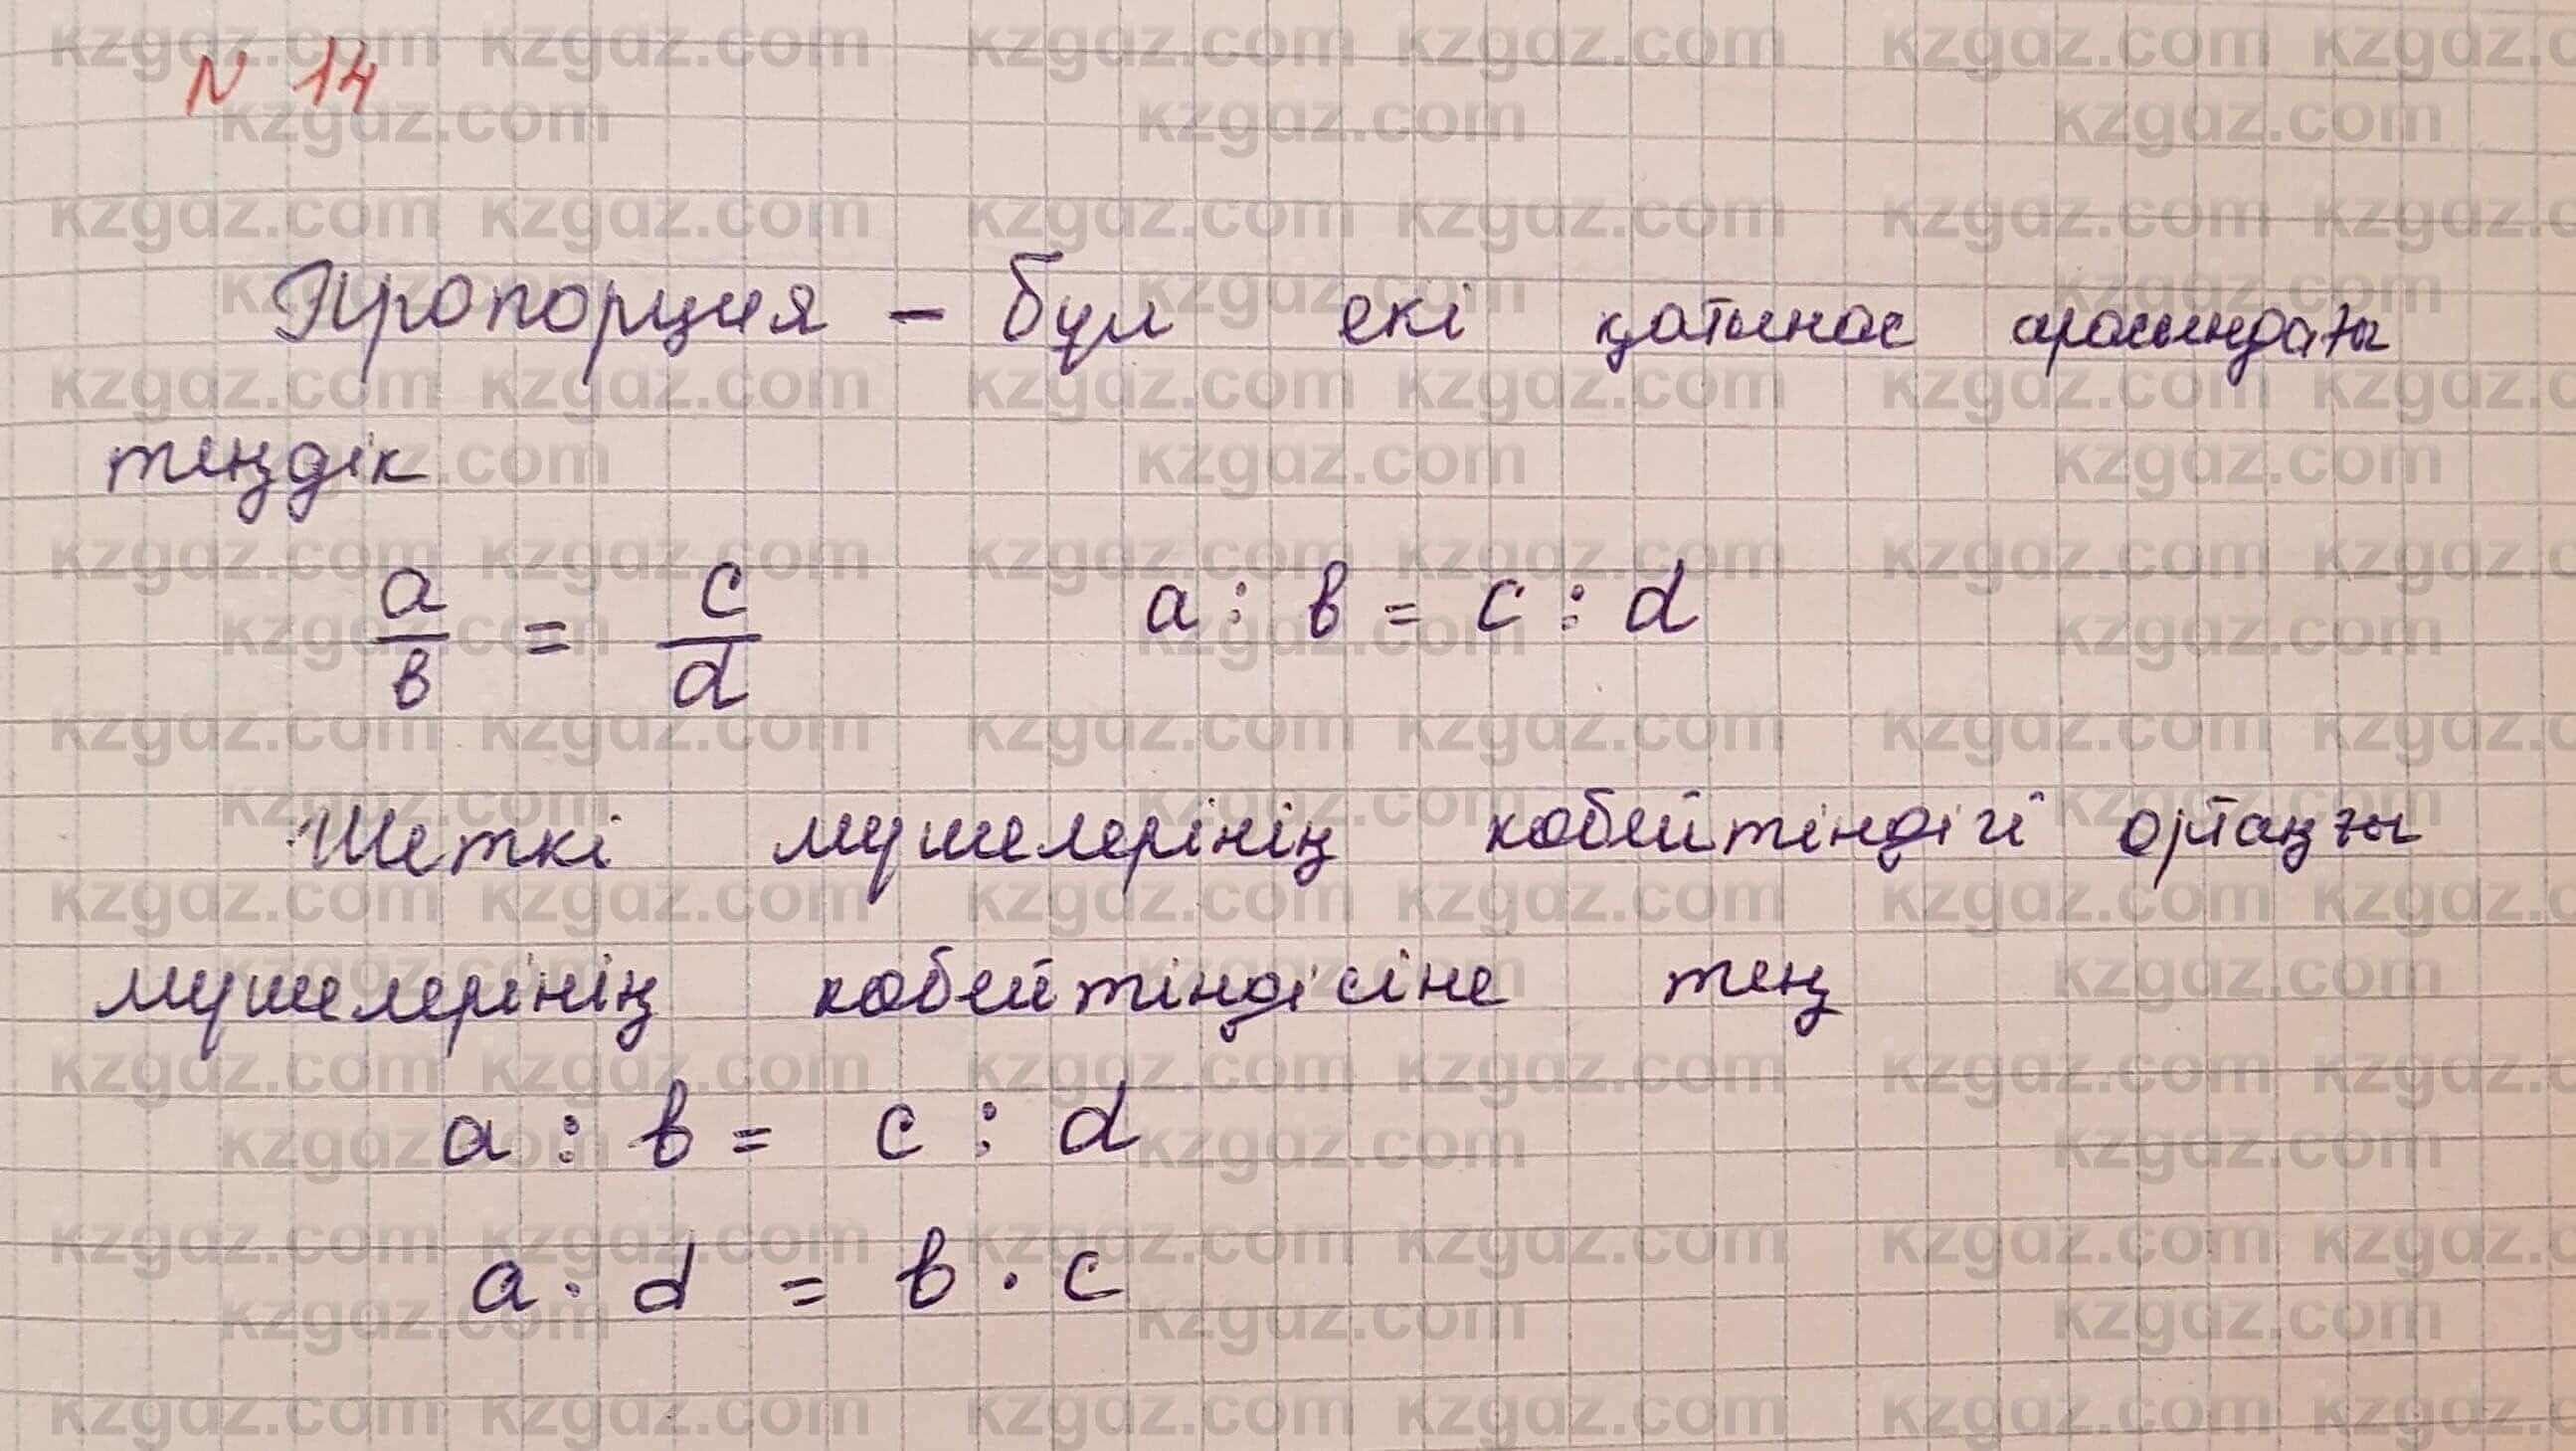 N 14
Пропорция - бұл екі қатынас арасындағы
теңдік
a/b = c/d a : b = c : d
Шеткі мүшелерінің көбейтіндігі ортаңғы
мүшелерінің көбейтіндісіне тең
a : b = c : d
a · d = b · c